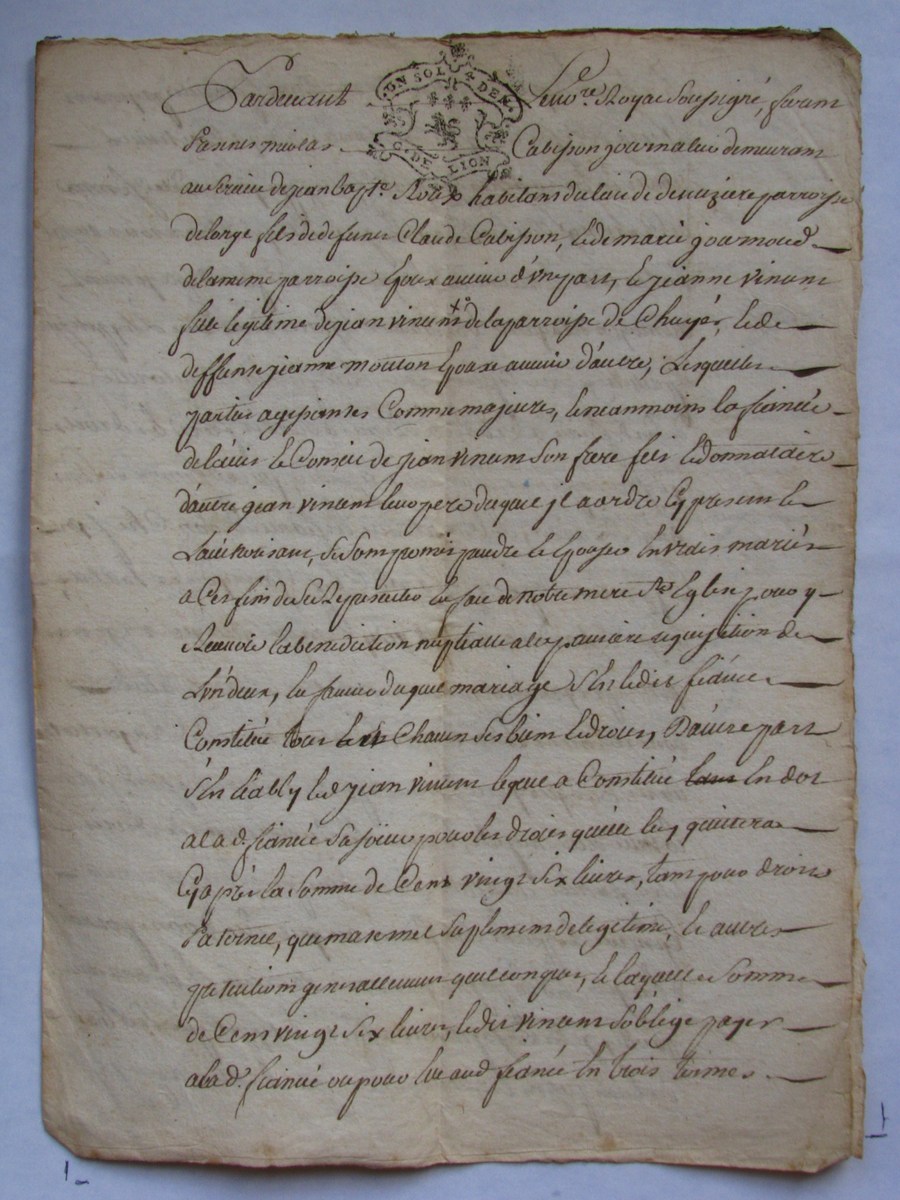 Pardevant le no.re Royal soussigné, furent
UN SOL DEN
G. DE LION
presents Cabisson journalier demeurant
au service de jean bapte Roux habitans du lieu de parroisse
de lorge fils de defunct Claude Cabisson, et de marie journoud
de la meme parroisse Epoux avenir d'une part, et jeanne vincent
fille legitime de jean vincent de la parroisse de Chuyer, et de
deffunte jeanne mouton Epouse avenir d'autre, Lesquelles
parties agissantes Comme majeures, et neanmoins la fiancée
de l'avis et Conseil de jean vincent son frere fils et donnataire
d'autre jean vincent leur pere duquel il a ordre Cy present et
L'authorisant, se sont promis prendre et Epouser En vrais mariés
a Ces fins de se Representer En face de notre mere Ste Eglise pour y
Recevoir la benediction nuptialle a la premiere requisition de
L'un deux, En faveur duquel mariage s'est ledit fiancé
Constitué tous Chacun ses biens et droits, D'autre part
s'est Etably led jean vincent lequel a Constitué En dot
a la d. fiancée sa soeur pour les droits quelle luy quittera
Cy après la somme de Cent vingt six livres, tant pour droits
Paternel, que maternel suplement de legitime, et autres
pretentions generallement quelconques, et laquelle somme
de Cent vingt six livres, ledit vincent s'oblige payer
a la d. fiancée ou pour elle aud fiancé En trois termes